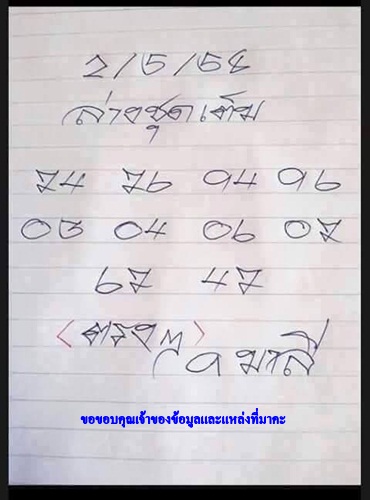 2/5/58
ล่างชุดเต็ม
74 76 94 96
03 04 06 07
67 47
<ตรงๆ>
มาลี
ขอขอบคุณเจ้าของข้อมูลและแหล่งที่มาคะ